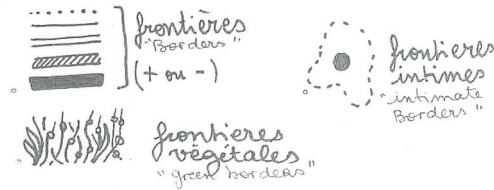 frontières
"Borders"
(+ ou -)
frontières
intimes
"intimate
Borders"
frontières
végétales
"green borders"